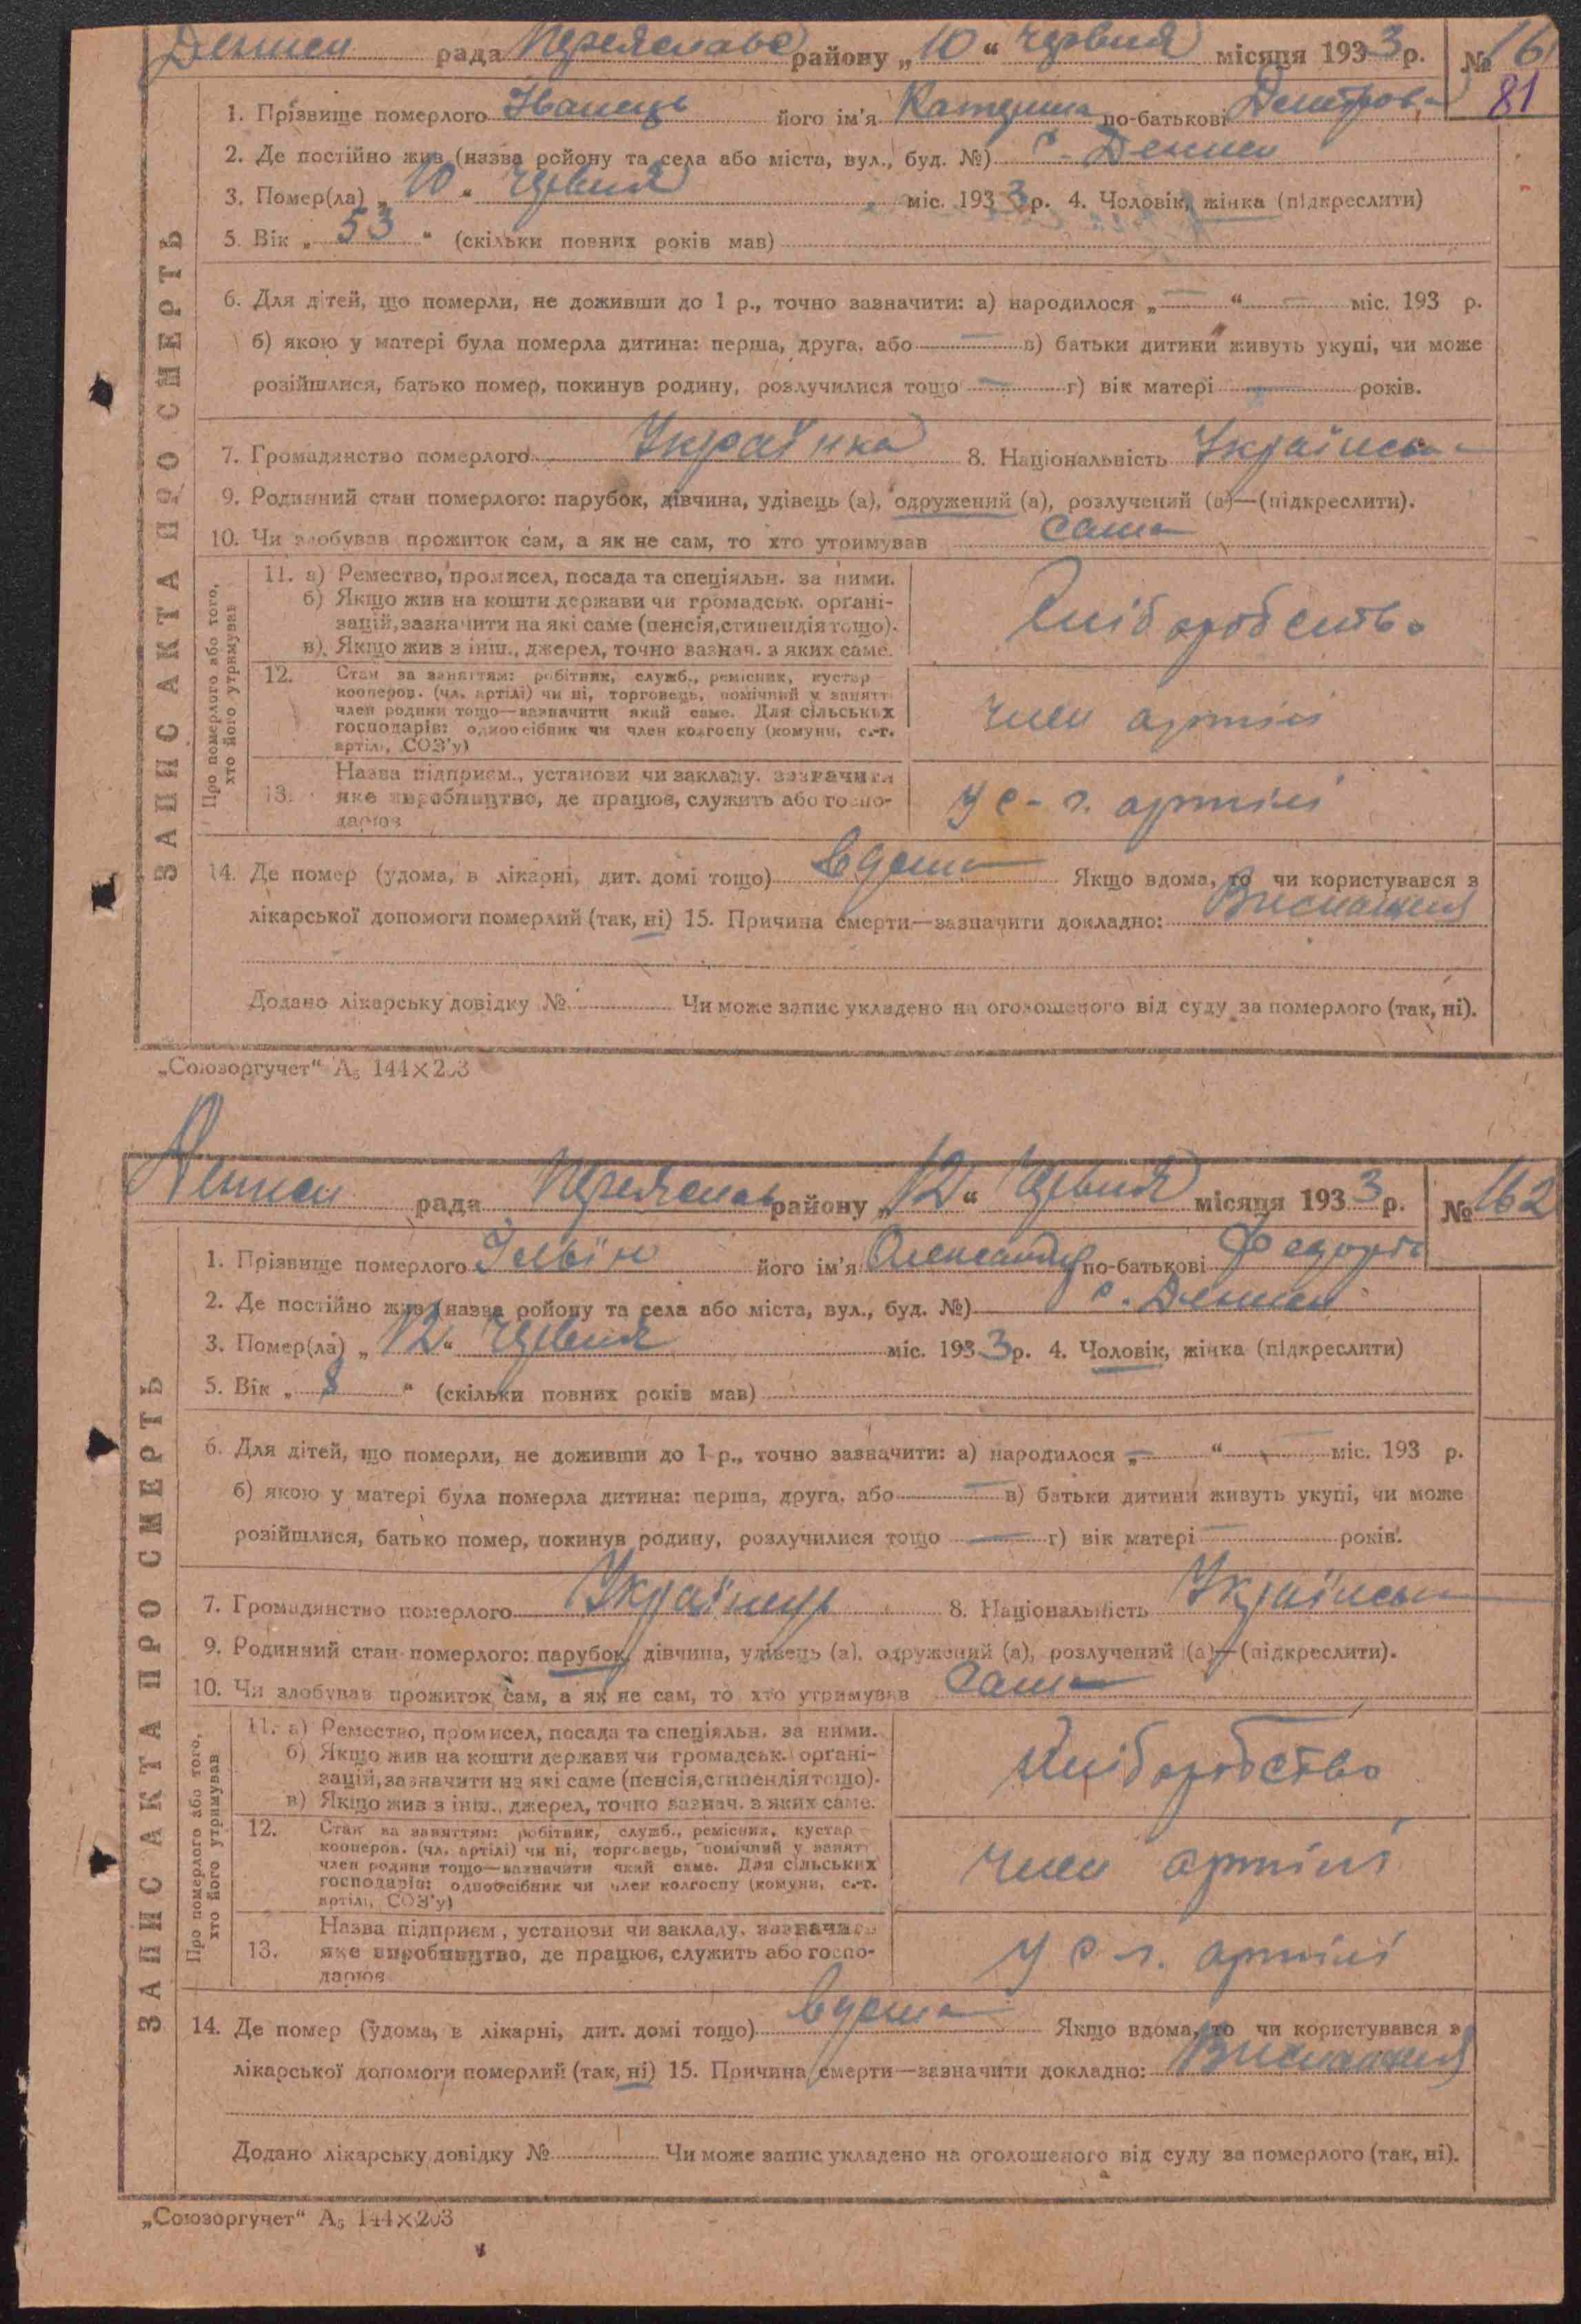 Денисі рада Переяславс району „10“ червня місяця 1933 р. № 161
81
ЗАПИС АКТА ПРО СМЕРТЬ
1. Прізвище померлого Іванець його ім'я Катерина по-батькові Дмитров.
2. Де постійно жив (назва ройону та села або міста, вул., буд. №) с. Дениси
3. Помер(ла) „10“ червня міс. 1933 р. 4. Чоловік, жінка (підкреслити)
5. Вік „53“ (скільки повних років мав)
6. Для дітей, що померли, не доживши до 1 р., точно зазначити: а) народилося „—“ — міс. 193 р.
б) якою у матері була померла дитина: перша, друга, або — в) батьки дитини живуть укупі, чи може
розійшлися, батько помер, покинув родину, розлучилися тощо — г) вік матері — років.
7. Громадянство померлого Українка 8. Національність Українська
9. Родинний стан померлого: парубок, дівчина, удівець (а), одружений (а), розлучений (а)—(підкреслити).
10. Чи здобував прожиток сам, а як не сам, то хто утримував сама
Про померлого або того, хто його утримував
11. а) Ремество, промисел, посада та спеціяльн. за ними.
б) Якщо жив на кошти держави чи громадськ. органі-
зацій, зазначити на які саме (пенсія, стипендія тощо).
в) Якщо жив з інш., джерел, точно зазнач. з яких саме.
Хліборобство
12. Стан за заняттям: робітник, служб., ремісник, кустар
кооперов. (чл. артілі) чи ні, торговець, помічний у занятт
член родини тощо—зазначити який саме. Для сільських
господарів: одноосібник чи член колгоспу (комуни, с.-г.
артілі, СОЗ'у)
член артілі
13. Назва підприєм., установи чи закладу, зазначити
яке виробництво, де працює, служить або госпо-
дарює
у с-г. артілі
14. Де помер (удома, в лікарні, дит. домі тощо) вдома Якщо вдома, то чи користувався з
лікарської допомоги померлий (так, ні) 15. Причина смерти—зазначити докладно: Виснаження
Додано лікарську довідку № Чи може запис укладено на оголошеного від суду за померлого (так, ні).
„Союзоргучет“ А₅ 144×203
Дениси рада Переяслав району „12“ червня місяця 1933 р. № 162
ЗАПИС АКТА ПРО СМЕРТЬ
1. Прізвище померлого Ільїн його ім'я Олександр по-батькові Федорів
2. Де постійно жив (назва ройону та села або міста, вул., буд. №) с. Дениси
3. Помер(ла) „12“ червня міс. 1933 р. 4. Чоловік, жінка (підкреслити)
5. Вік „8“ (скільки повних років мав)
6. Для дітей, що померли, не доживши до 1 р., точно зазначити: а) народилося „—“ — міс. 193 р.
б) якою у матері була померла дитина: перша, друга, або — в) батьки дитини живуть укупі, чи може
розійшлися, батько помер, покинув родину, розлучилися тощо — г) вік матері — років.
7. Громадянство померлого Українець 8. Національність Українська
9. Родинний стан померлого: парубок, дівчина, удівець (а), одружений (а), розлучений (а)—(підкреслити).
10. Чи здобував прожиток сам, а як не сам, то хто утримував сама
Про померлого або того, хто його утримував
11. а) Ремество, промисел, посада та спеціяльн. за ними.
б) Якщо жив на кошти держави чи громадськ. органі-
зацій, зазначити на які саме (пенсія, стипендія тощо).
в) Якщо жив з інш., джерел, точно зазнач. з яких саме.
Хліборобство
12. Стан за заняттям: робітник, служб., ремісник, кустар
кооперов. (чл. артілі) чи ні, торговець, помічний у занятт
член родини тощо—зазначити який саме. Для сільських
господарів: одноосібник чи член колгоспу (комуни, с.-г.
артілі, СОЗ'у)
член артілі
13. Назва підприєм., установи чи закладу, зазначити
яке виробництво, де працює, служить або госпо-
дарює
у с-г. артілі
14. Де помер (удома, в лікарні, дит. домі тощо) вдома Якщо вдома, то чи користувався з
лікарської допомоги померлий (так, ні) 15. Причина смерти—зазначити докладно: Виснаження
Додано лікарську довідку № Чи може запис укладено на оголошеного від суду за померлого (так, ні).
„Союзоргучет“ А₅ 144×203